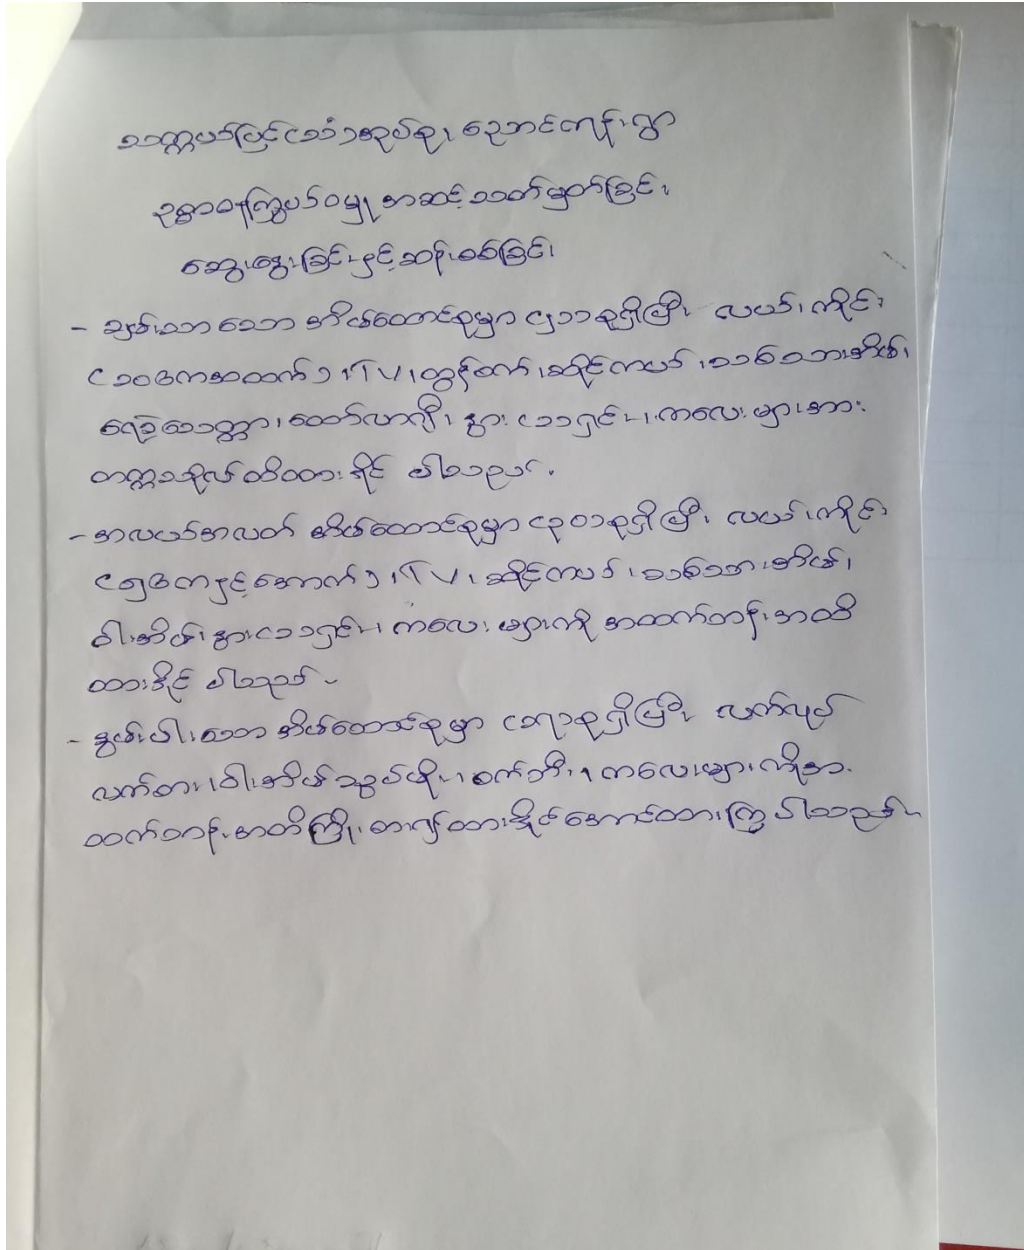 သတ္တပဒ်မြင်(သံ)အုပ်စု၊ ညောင်ကုန်းရွာ
ဥစ္စာဓနကြွယ်ဝမှု အဆင့်သတ်မှတ်ခြင်း
ဆွေးနွေးခြင်းနှင့်ဆန်းစစ်ခြင်း
- ချမ်းသာသော အိမ်ထောင်စုမှာ (၂၁) စုရှိပြီး လယ်၊ ကိုင်း
(၁၀ ဧကအထက်)၊ TV၊ ထွန်စက်၊ ဆိုင်ကယ်၊ သစ်သားအိမ်၊
ရေခဲသေတ္တာ၊ ထော်လာဂျီ၊ နွား (၁၁ ရှဉ်း)၊ ကလေးများအား
တက္ကသိုလ်ထိထားနိုင် ပါသည်။
- အလယ်အလတ် အိမ်ထောင်စုမှာ (၃၀) စုရှိပြီး လယ်၊ ကိုင်း
(၅ ဧကနှင့်အောက်)၊ TV၊ ဆိုင်ကယ်၊ သစ်သားအိမ်၊
ဝါးအိမ်၊ နွား (၁ ရှဉ်း)၊ ကလေးများကို အထက်တန်းအထိ
ထားနိုင် ပါသည်။
- နွမ်းပါးသော အိမ်ထောင်စုမှာ စုရှိပြီး လက်လုပ်
လက်စား၊ ဝါးအိမ်သွပ်မိုး၊ စက်ဘီး၊ ကလေးများကိုအ
ထက်တန်းအထိကြိုးစား၍ထားနိုင်အောင်ထားကြပါသည်။